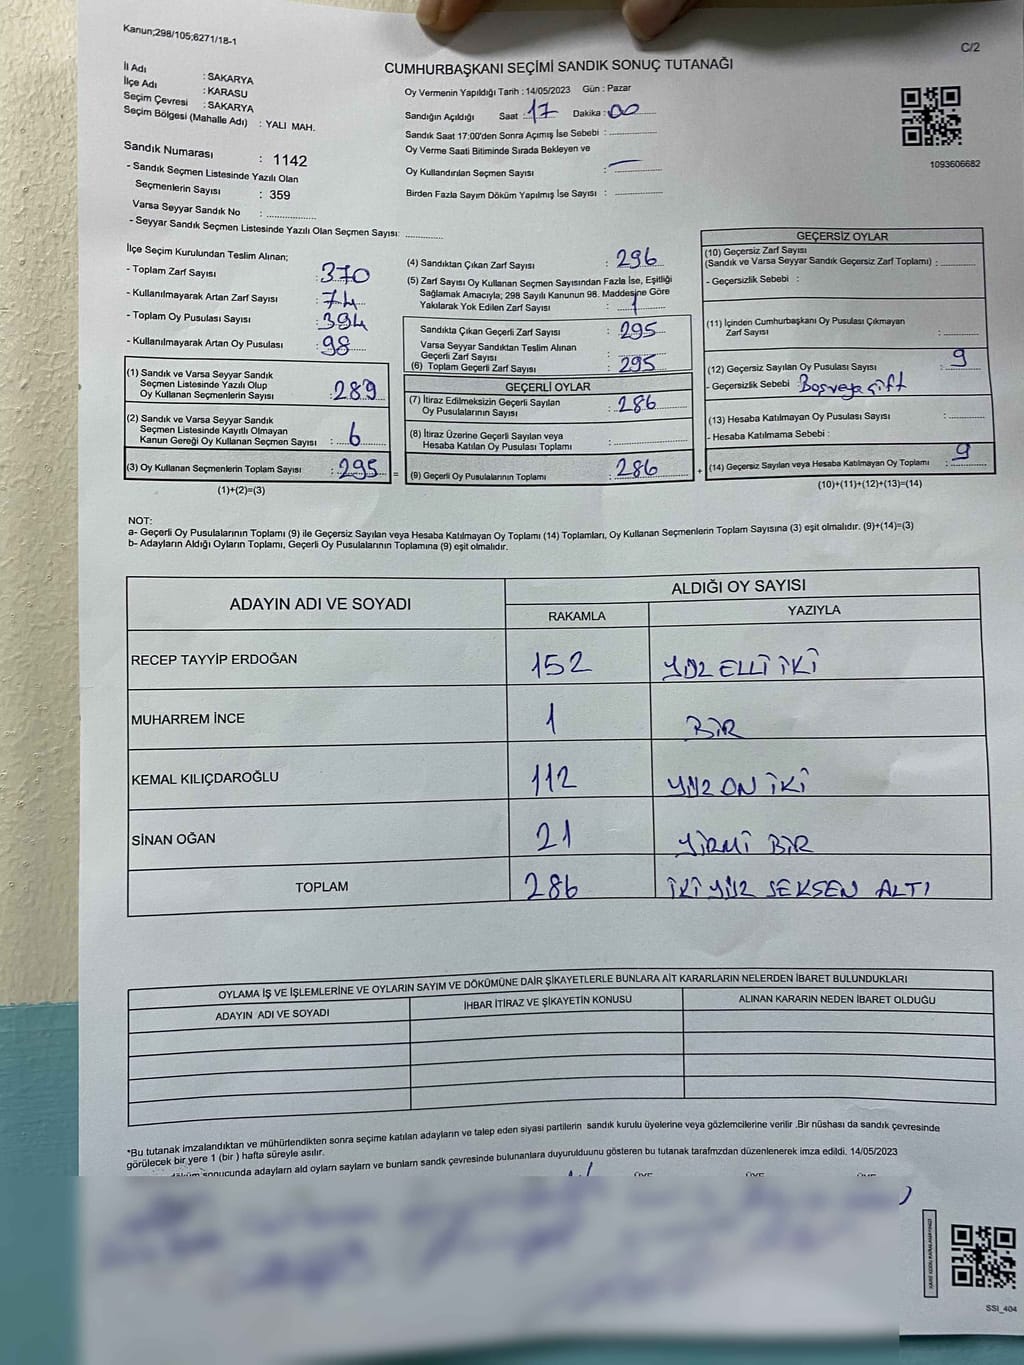 Kanun;298/105;6271/18-1
C/2
CUMHURBAŞKANI SEÇİMİ SANDIK SONUÇ TUTANAĞI
İl Adı : SAKARYA
İlçe Adı : KARASU
Seçim Çevresi : SAKARYA
Seçim Bölgesi (Mahalle Adı) : YALI MAH.
Sandık Numarası : 1142
- Sandık Seçmen Listesinde Yazılı Olan
Seçmenlerin Sayısı : 359
Varsa Seyyar Sandık No : ................
- Seyyar Sandık Seçmen Listesinde Yazılı Olan Seçmen Sayısı: ............
Oy Vermenin Yapıldığı Tarih : 14/05/2023 Gün : Pazar
Sandığın Açıldığı Saat : 17 Dakika : 00
Sandık Saat 17:00'den Sonra Açımış İse Sebebi : ................
Oy Verme Saati Bitiminde Sırada Bekleyen ve
Oy Kullandırılan Seçmen Sayısı : —
Birden Fazla Sayım Döküm Yapılmış İse Sayısı : ................
1093606682
İlçe Seçim Kurulundan Teslim Alınan;
- Toplam Zarf Sayısı : 370
- Kullanılmayarak Artan Zarf Sayısı : 74
- Toplam Oy Pusulası Sayısı : 394
- Kullanılmayarak Artan Oy Pusulası : 98
(1) Sandık ve Varsa Seyyar Sandık
Seçmen Listesinde Yazılı Olup
Oy Kullanan Seçmenlerin Sayısı : 289
(2) Sandık ve Varsa Seyyar Sandık
Seçmen Listesinde Kayıtlı Olmayan
Kanun Gereği Oy Kullanan Seçmen Sayısı : 6
(3) Oy Kullanan Seçmenlerin Toplam Sayısı : 295 =
(1)+(2)=(3)
(4) Sandıktan Çıkan Zarf Sayısı : 296
(5) Zarf Sayısı Oy Kullanan Seçmen Sayısından Fazla İse, Eşitliği
Sağlamak Amacıyla; 298 Sayılı Kanunun 98. Maddesine Göre
Yakılarak Yok Edilen Zarf Sayısı : 1
Sandıkta Çıkan Geçerli Zarf Sayısı : 295
Varsa Seyyar Sandıktan Teslim Alınan
Geçerli Zarf Sayısı : ............
(6) Toplam Geçerli Zarf Sayısı : 295
GEÇERLİ OYLAR
(7) İtiraz Edilmeksizin Geçerli Sayılan
Oy Pusulalarının Sayısı : 286
(8) İtiraz Üzerine Geçerli Sayılan veya
Hesaba Katılan Oy Pusulası Toplamı : ................
(9) Geçerli Oy Pusulalarının Toplamı : 286 +
GEÇERSİZ OYLAR
(10) Geçersiz Zarf Sayısı
(Sandık ve Varsa Seyyar Sandık Geçersiz Zarf Toplamı) : ............
- Geçersizlik Sebebi :
(11) İçinden Cumhurbaşkanı Oy Pusulası Çıkmayan
Zarf Sayısı : ............
(12) Geçersiz Sayılan Oy Pusulası Sayısı : 9
- Geçersizlik Sebebi : Boş veya çift
(13) Hesaba Katılmayan Oy Pusulası Sayısı : ............
- Hesaba Katılmama Sebebi :
(14) Geçersiz Sayılan veya Hesaba Katılmayan Oy Toplamı : 9
(10)+(11)+(12)+(13)=(14)
NOT:
a- Geçerli Oy Pusulalarının Toplamı (9) ile Geçersiz Sayılan veya Hesaba Katılmayan Oy Toplamı (14) Toplamları, Oy Kullanan Seçmenlerin Toplam Sayısına (3) eşit olmalıdır. (9)+(14)=(3)
b- Adayların Aldığı Oyların Toplamı, Geçerli Oy Pusulalarının Toplamına (9) eşit olmalıdır.
ADAYIN ADI VE SOYADI ALDIĞI OY SAYISI
RAKAMLA YAZIYLA
RECEP TAYYİP ERDOĞAN 152 YÜZ ELLİ İKİ
MUHARREM İNCE 1 BİR
KEMAL KILIÇDAROĞLU 112 YÜZ ON İKİ
SİNAN OĞAN 21 YİRMİ BİR
TOPLAM 286 İKİ YÜZ SEKSEN ALTI
OYLAMA İŞ VE İŞLEMLERİNE VE OYLARIN SAYIM VE DÖKÜMÜNE DAİR ŞİKAYETLERLE BUNLARA AİT KARARLARIN NELERDEN İBARET BULUNDUKLARI
ADAYIN ADI VE SOYADI İHBAR İTİRAZ VE ŞİKAYETİN KONUSU ALINAN KARARIN NEDEN İBARET OLDUĞU
*Bu tutanak imzalandıktan ve mühürlendikten sonra seçime katılan adayların ve talep eden siyasi partilerin sandık kurulu üyelerine veya gözlemcilerine verilir .Bir nüshası da sandık çevresinde
görülecek bir yere 1 (bir ) hafta süreyle asılır.
sonucunda adayların ald oyların sayların ve bunların sandk çevresinde bulunanlara duyurulduunu gösteren bu tutanak tarafmzdan düzenlenerek imza edildi. 14/05/2023
SSI_404